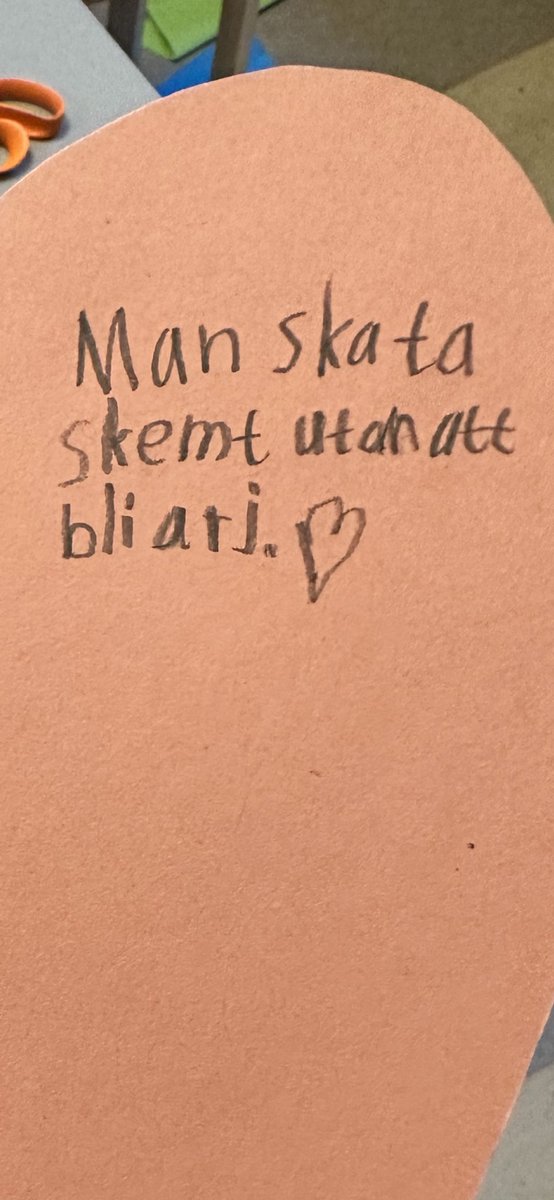 Man ska ta
skemt utan att
bli arj. ♡